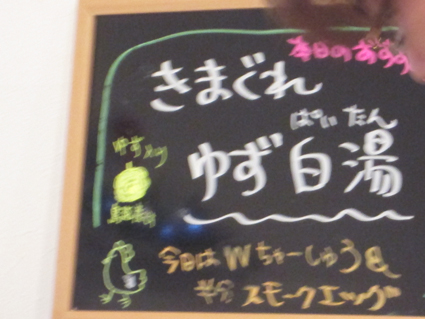 本日のおすす
きまぐれ
ぱいたん
ゆず白湯
ゆず入り
今日はWちゃーしゅう&
半分スモークエッグ